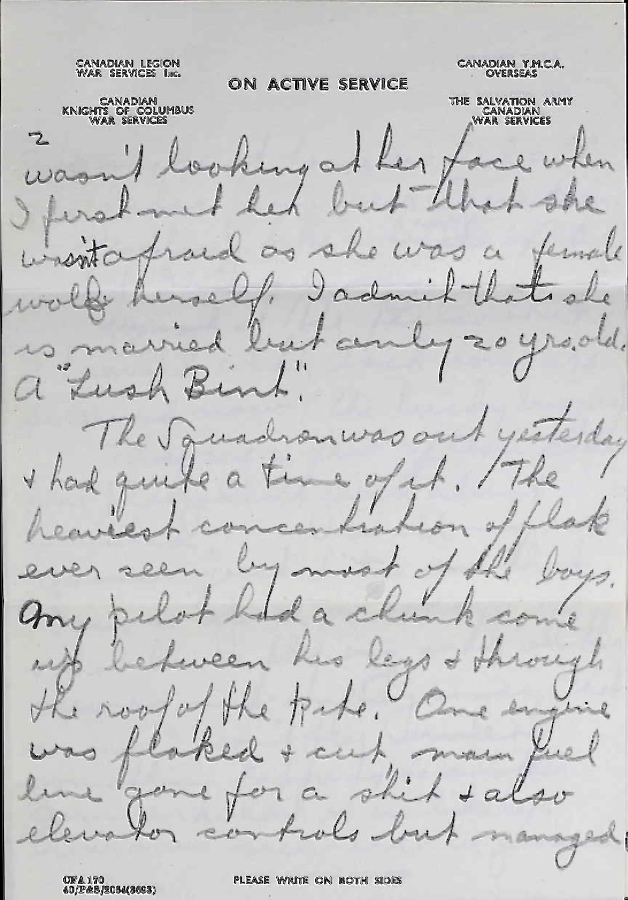 CANADIAN LEGION
WAR SERVICES Inc.
CANADIAN
KNIGHTS OF COLUMBUS
WAR SERVICES
ON ACTIVE SERVICE
CANADIAN Y.M.C.A.
OVERSEAS
THE SALVATION ARMY
CANADIAN
WAR SERVICES
2
wasn't looking at her face when
I first met her but that she
wasn't afraid as she was a female
wolf herself. I admit that she
is married but only 20 yrs. old.
A "Lush Bint".
The Squadron was out yesterday
& had quite a time of it. The
heaviest concentration of flak
ever seen by most of the boys.
My pilot had a chunk come
up between his legs & through
the roof of the kite. One engine
was flaked & cut, main fuel
line gone for a shit & also
elevator controls but managed
CFA 170
PLEASE WRITE ON BOTH SIDES